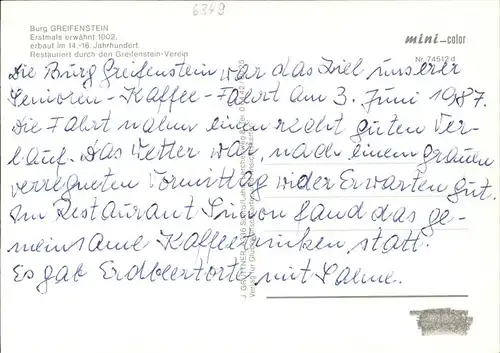 6349
Burg GREIFENSTEIN
Erstmals erwähnt 1002,
erbaut im 14.-16. Jahrhundert.
Restauriert durch den Greifenstein-Verein
mini-color
Nr. 74512 d
Die Burg Greifenstein war das Ziel unserer
Senioren-Kaffee-Fahrt am 3. Juni 1987.
Die Fahrt nahm einen recht guten Ver-
lauf. Das Wetter war, nach einem grauen
verregneten Vormittag wider Erwarten gut.
Im Restaurant Simon fand das ge-
meinsame Kaffeetrinken statt.
Es gab Erdbeertorte mit Sahne.